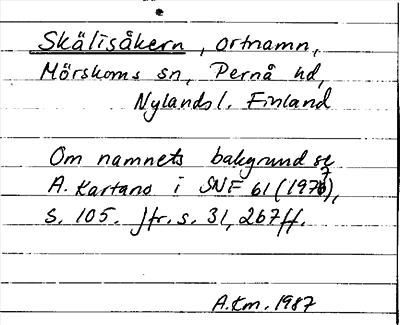 Skälisåkern, ortnamn,
Mörskoms sn, Pernå hd,
Nylands l. Finland
Om namnets bakgrund se
A. Kartano i SNF 61 (1973),
s. 105. Jfr. s. 31, 267 ff.
A.Km. 1987